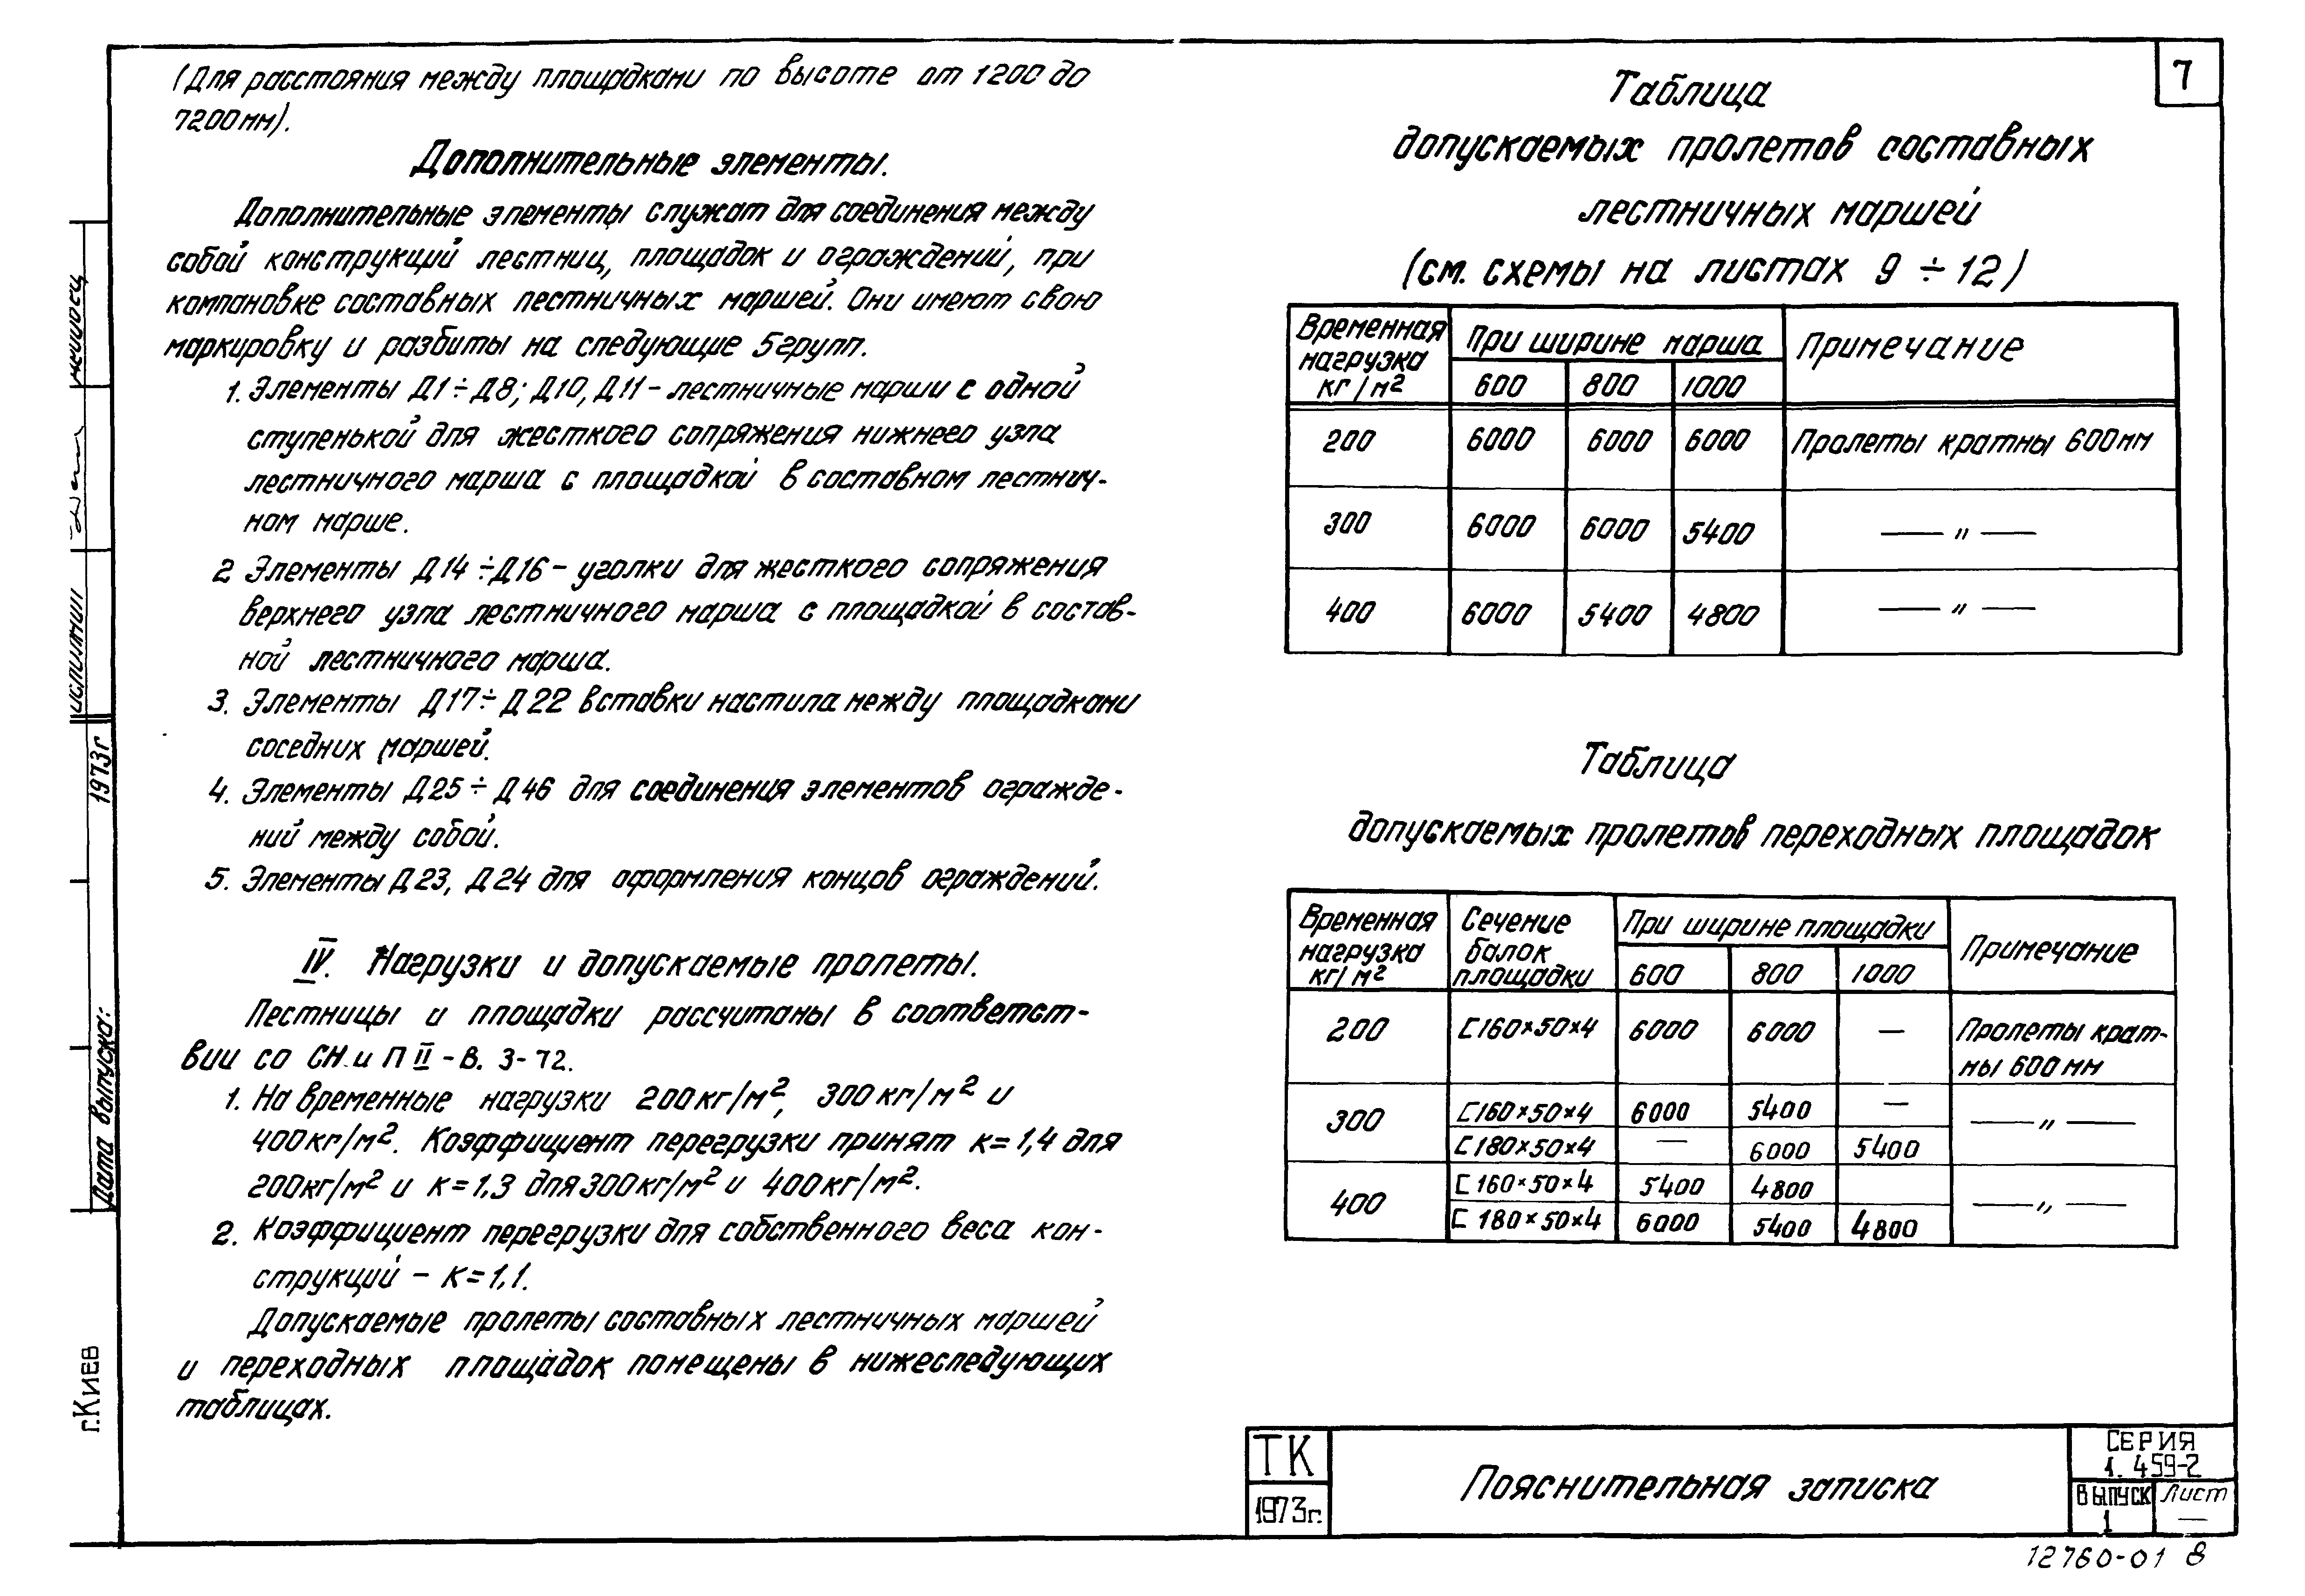 (Для расстояния между площадками по высоте от 1200 до
7200 мм).
Дополнительные элементы.
Дополнительные элементы служат для соединения между
собой конструкций лестниц, площадок и ограждений, при
компановке составных лестничных маршей. Они имеют свою
маркировку и разбиты на следующие 5 групп.
1. Элементы Д1÷Д8; Д10, Д11 - лестничные марши с одной
ступенькой для жесткого сопряжения нижнего узла
лестничного марша с площадкой в составном лестнич-
ном марше.
2 Элементы Д14÷Д16 - уголки для жесткого сопряжения
верхнего узла лестничного марша с площадкой в состав-
ной лестничного марша.
3. Элементы Д17÷Д22 вставки настила между площадками
соседних маршей.
4. Элементы Д25÷Д46 для соединения элементов огражде-
ний между собой.
5. Элементы Д23, Д24 для оформления концов ограждений.
IV. Нагрузки и допускаемые пролеты.
Лестницы и площадки рассчитаны в соответст-
вии со СН и П II - В. 3-72.
1. На временные нагрузки 200 кг/м², 300 кг/м² и
400 кг/м². Коэффициент перегрузки принят к=1,4 для
200 кг/м² и к=1,3 для 300 кг/м² и 400 кг/м².
2. Коэффициент перегрузки для собственного веса кон-
струкций - к=1,1.
Допускаемые пролеты составных лестничных маршей
и переходных площадок помещены в нижеследующих
таблицах.
7
Таблица
допускаемых пролетов составных
лестничных маршей
(см. схемы на листах 9 ÷ 12)
Временная нагрузка кг/м² При ширине марша Примечание
600 800 1000
200 6000 6000 6000 Пролеты кратны 600 мм
300 6000 6000 5400 — " —
400 6000 5400 4800 — " —
Таблица
допускаемых пролетов переходных площадок
Временная нагрузка кг/м² Сечение балок площадки При ширине площадки Примечание
600 800 1000
200 [160×50×4 6000 6000 — Пролеты крат-
ны 600 мм
300 [160×50×4 6000 5400 — — " —
[180×50×4 — 6000 5400
400 [160×50×4 5400 4800 — " —
[180×50×4 6000 5400 4800
ТК
1973г.
Пояснительная записка
СЕРИЯ
1. 459-2
Выпуск
1
Лист
—
12760-01 8
исполнил
1973г
Дата выпуска:
г. Киев